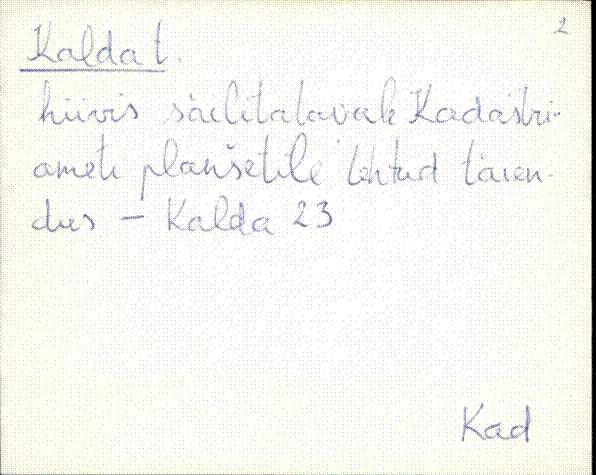 2
Kalda t.
hiivis säilitatavale Kadastri-
ameti planšetile tehtud täien-
dus – Kalda 23
Kad